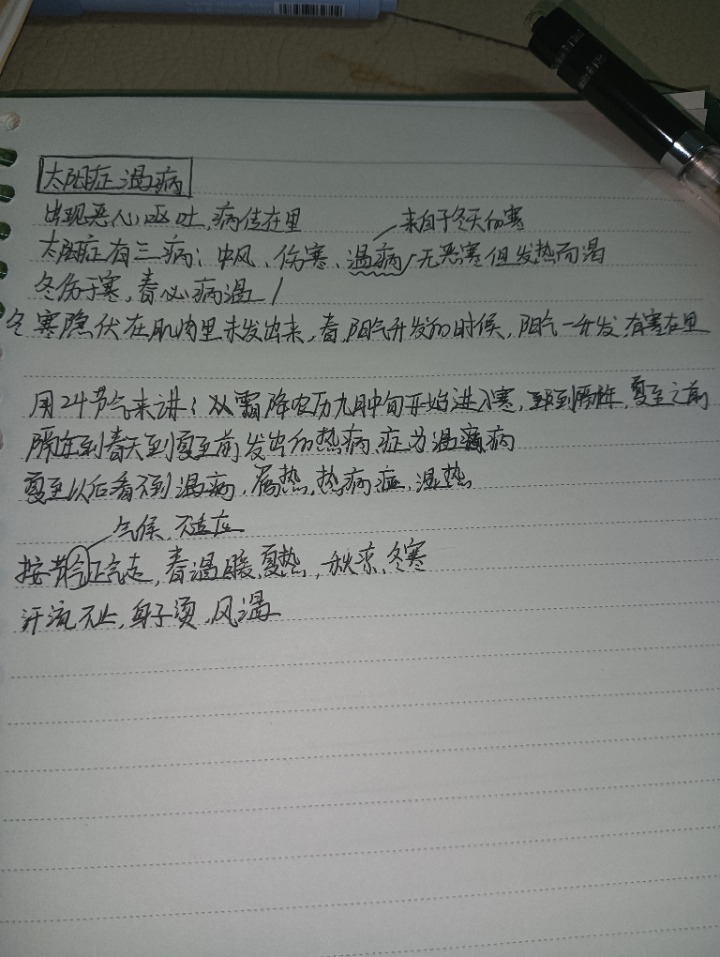 太阳症温病
出现恶心呕吐,病传在里
来自于冬天伤寒
太阳症有三病:中风、伤寒、温病,无恶寒但发热而渴
冬伤于寒,春必病温
冬寒隐伏在肌肉里未发出来,春,阳气升发的时候,阳气一升发,有寒在里
用24节气来讲:从霜降农历九月中旬开始进入寒,到隔年,夏至之前
隔年到春天到夏至前发出的热病,症为温病
夏至以后看不到温病,属热,热病症,湿热
气候,不适应
按节令正气走,春温暖,夏热,秋凉,冬寒
汗流不止,身子烫,风温